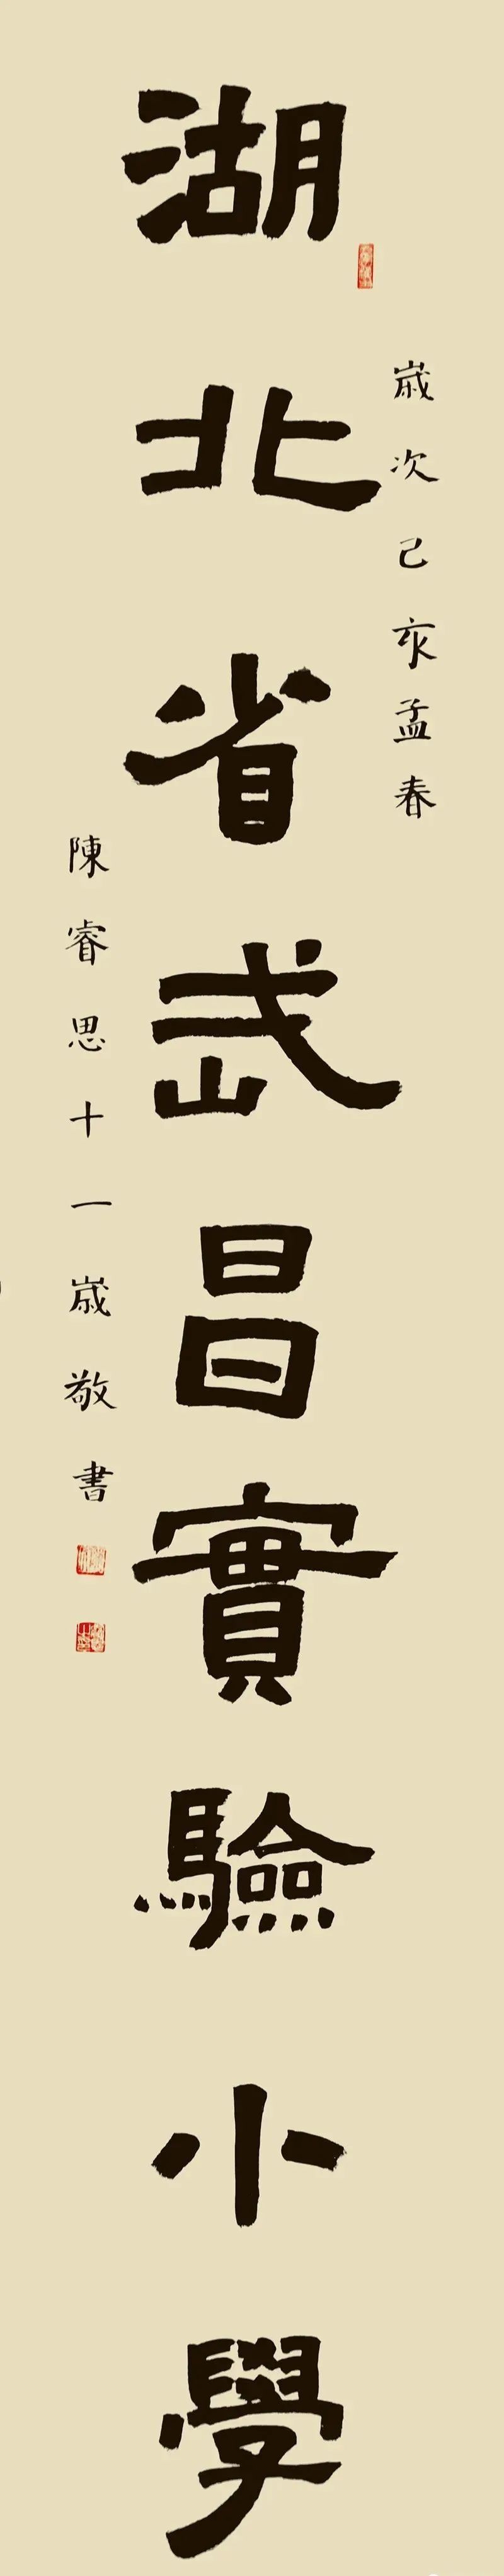 歲次己亥孟春
湖北省武昌實驗小學
陳睿思十一歲敬書